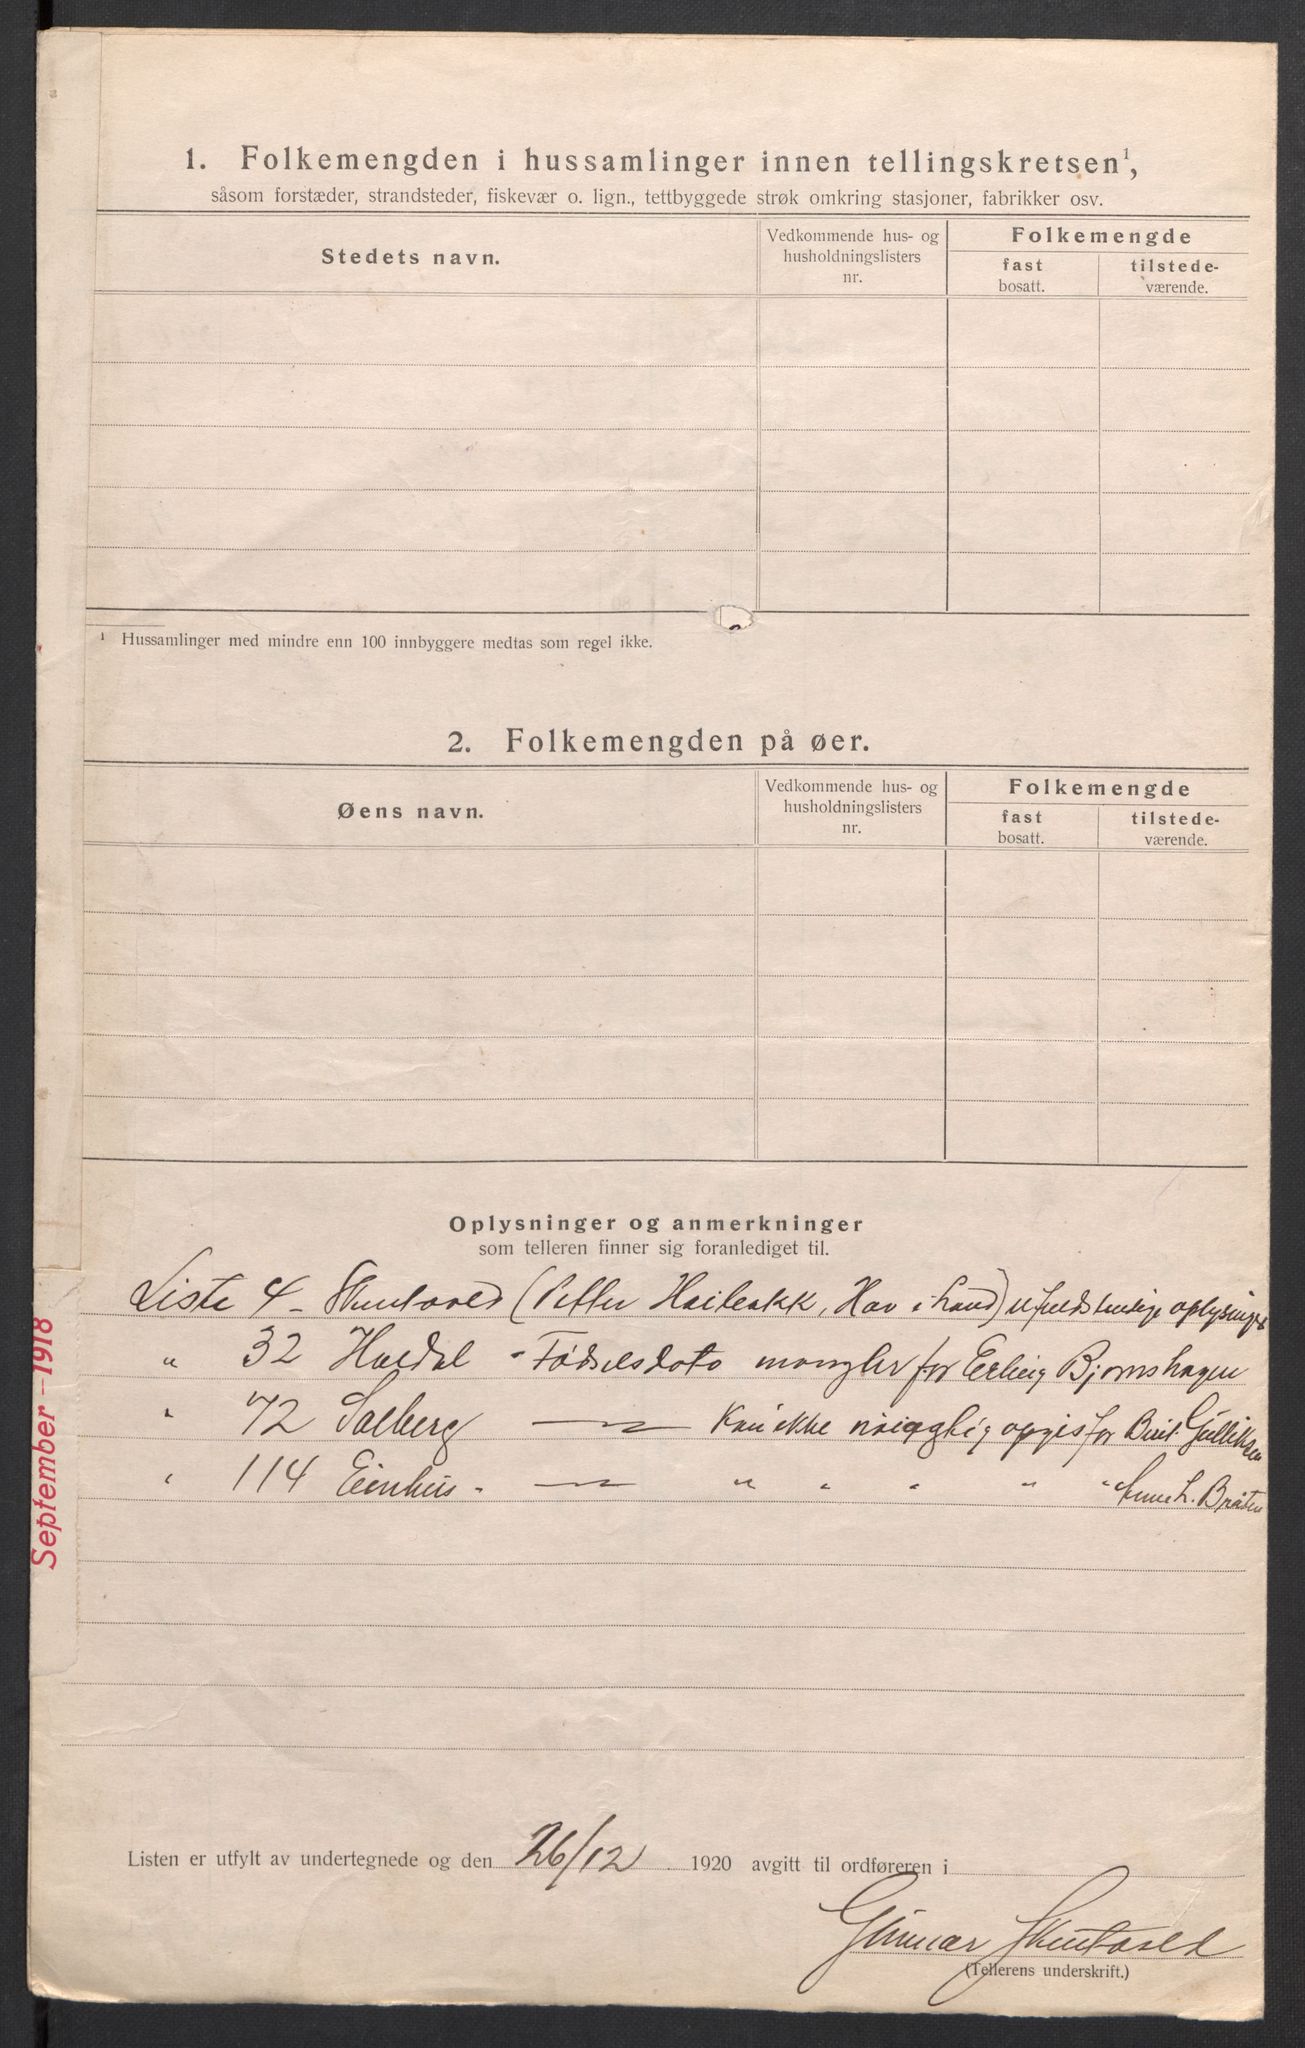 1. Folkemengden i hussamlinger innen tellingskretsen¹,
såsom forstæder, strandsteder, fiskevær o. lign., tettbyggede strøk omkring stasjoner, fabrikker osv.
Stedets navn.
Vedkommende hus- og husholdningslisters nr.
Folkemengde
fast bosatt.
tilstede-værende.
¹ Hussamlinger med mindre enn 100 innbyggere medtas som regel ikke.
2. Folkemengden på øer.
Øens navn.
Vedkommende hus- og husholdningslisters nr.
Folkemengde
fast bosatt.
tilstede-værende.
Oplysninger og anmerkninger
som telleren finner sig foranlediget til.
Liste 4 - Skuttvold (Petter, Hav i land) ufuldstendige oplysninger
" 32 Haldal - Fødselsdato mangler for Erling Bjørnshagen
" 72 Solberg — Kan ikke nøiagtig opgis for Gulliksen
" 114 Eienhus - — " " " " " L. Bråten
September - 1918
Listen er utfylt av undertegnede og den 26/12 1920 avgitt til ordføreren i
Gunnar
(Tellerens underskrift.)